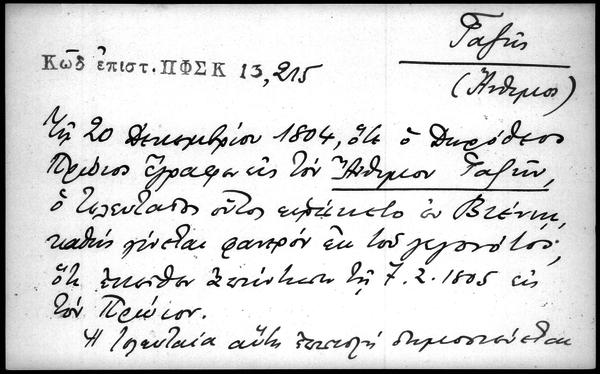 Γαζῆς
Κῶδ ἐπιστ. ΠΦΣΚ 13,215
(Ἄνθιμος)
Τῇ 20 Δεκεμβρίου 1804, ὅτε ὁ Δωρόθεος
Πρώιος ἔγραφεν εἰς τὸν Ἄνθιμον Γαζῆν,
ὁ τελευταῖος οὗτος εὑρίσκετο ἐν Βιέννῃ,
καθὼς γίνεται φανερὸν ἐκ τοῦ γεγονότος,
ὅτι ἐκεῖθεν ἀπήντησεν τῇ 7.2.1805 εἰς
τὸν Πρώιον.
Ἡ τελευταία αὕτη ἐπιστολὴ δημοσιεύεται